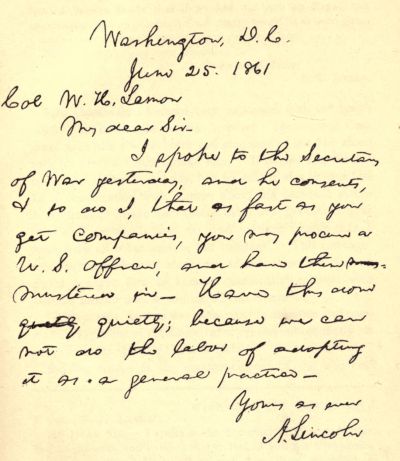 Washington, D.C.
June 25. 1861
Col W. H. Lamon
My dear Sir-
I spoke to the Secretary
of War yesterday, and he consents,
& so do I, that as fast as you
get Companies, you may procure a
U.S. officer, and have them
mustered in— Have this done
quietly; because we can
not do the labor of adopting
it as a general practice—
Yours as ever
A. Lincoln